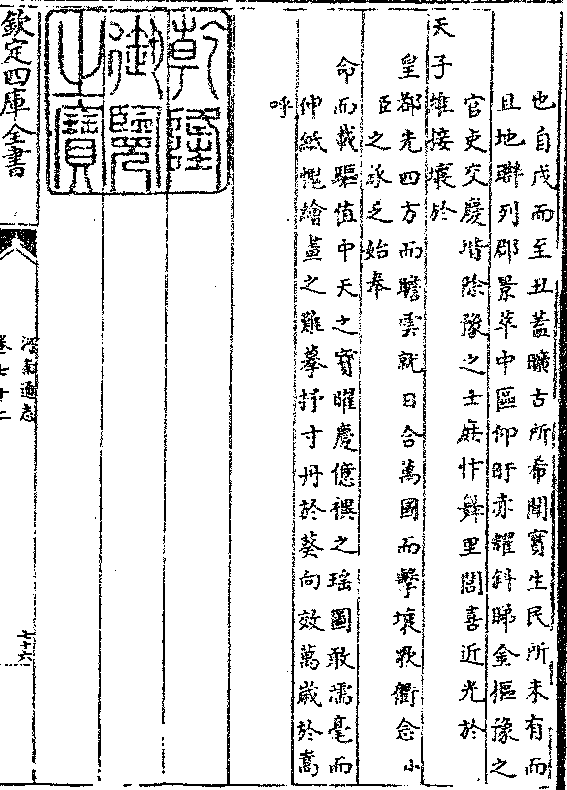 也自戌而至丑蓋曠古所希聞實生民所未有而
且地聯列郡景萃中區仰盱亦耀斜睇金樞豫之
官吏交慶堦除豫之士庶忭舞里閭喜近光於
天子雄接壤於
皇都先四方而瞻雲就日合萬國而擊壤歌衢念小
臣之承乏始奉
命而載驅值中天之寳曜慶億禩之瑶圖敢濡毫而
伸紙愧繪畫之難摹抒寸丹於葵向效萬歲於嵩
呼
乾隆御覽之寳
欽定四庫全書
河南通志
卷七十二
七十六